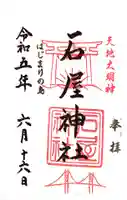 天地大御神
奉拝
石屋神社
はじまりの島
令和五年
六月十六日